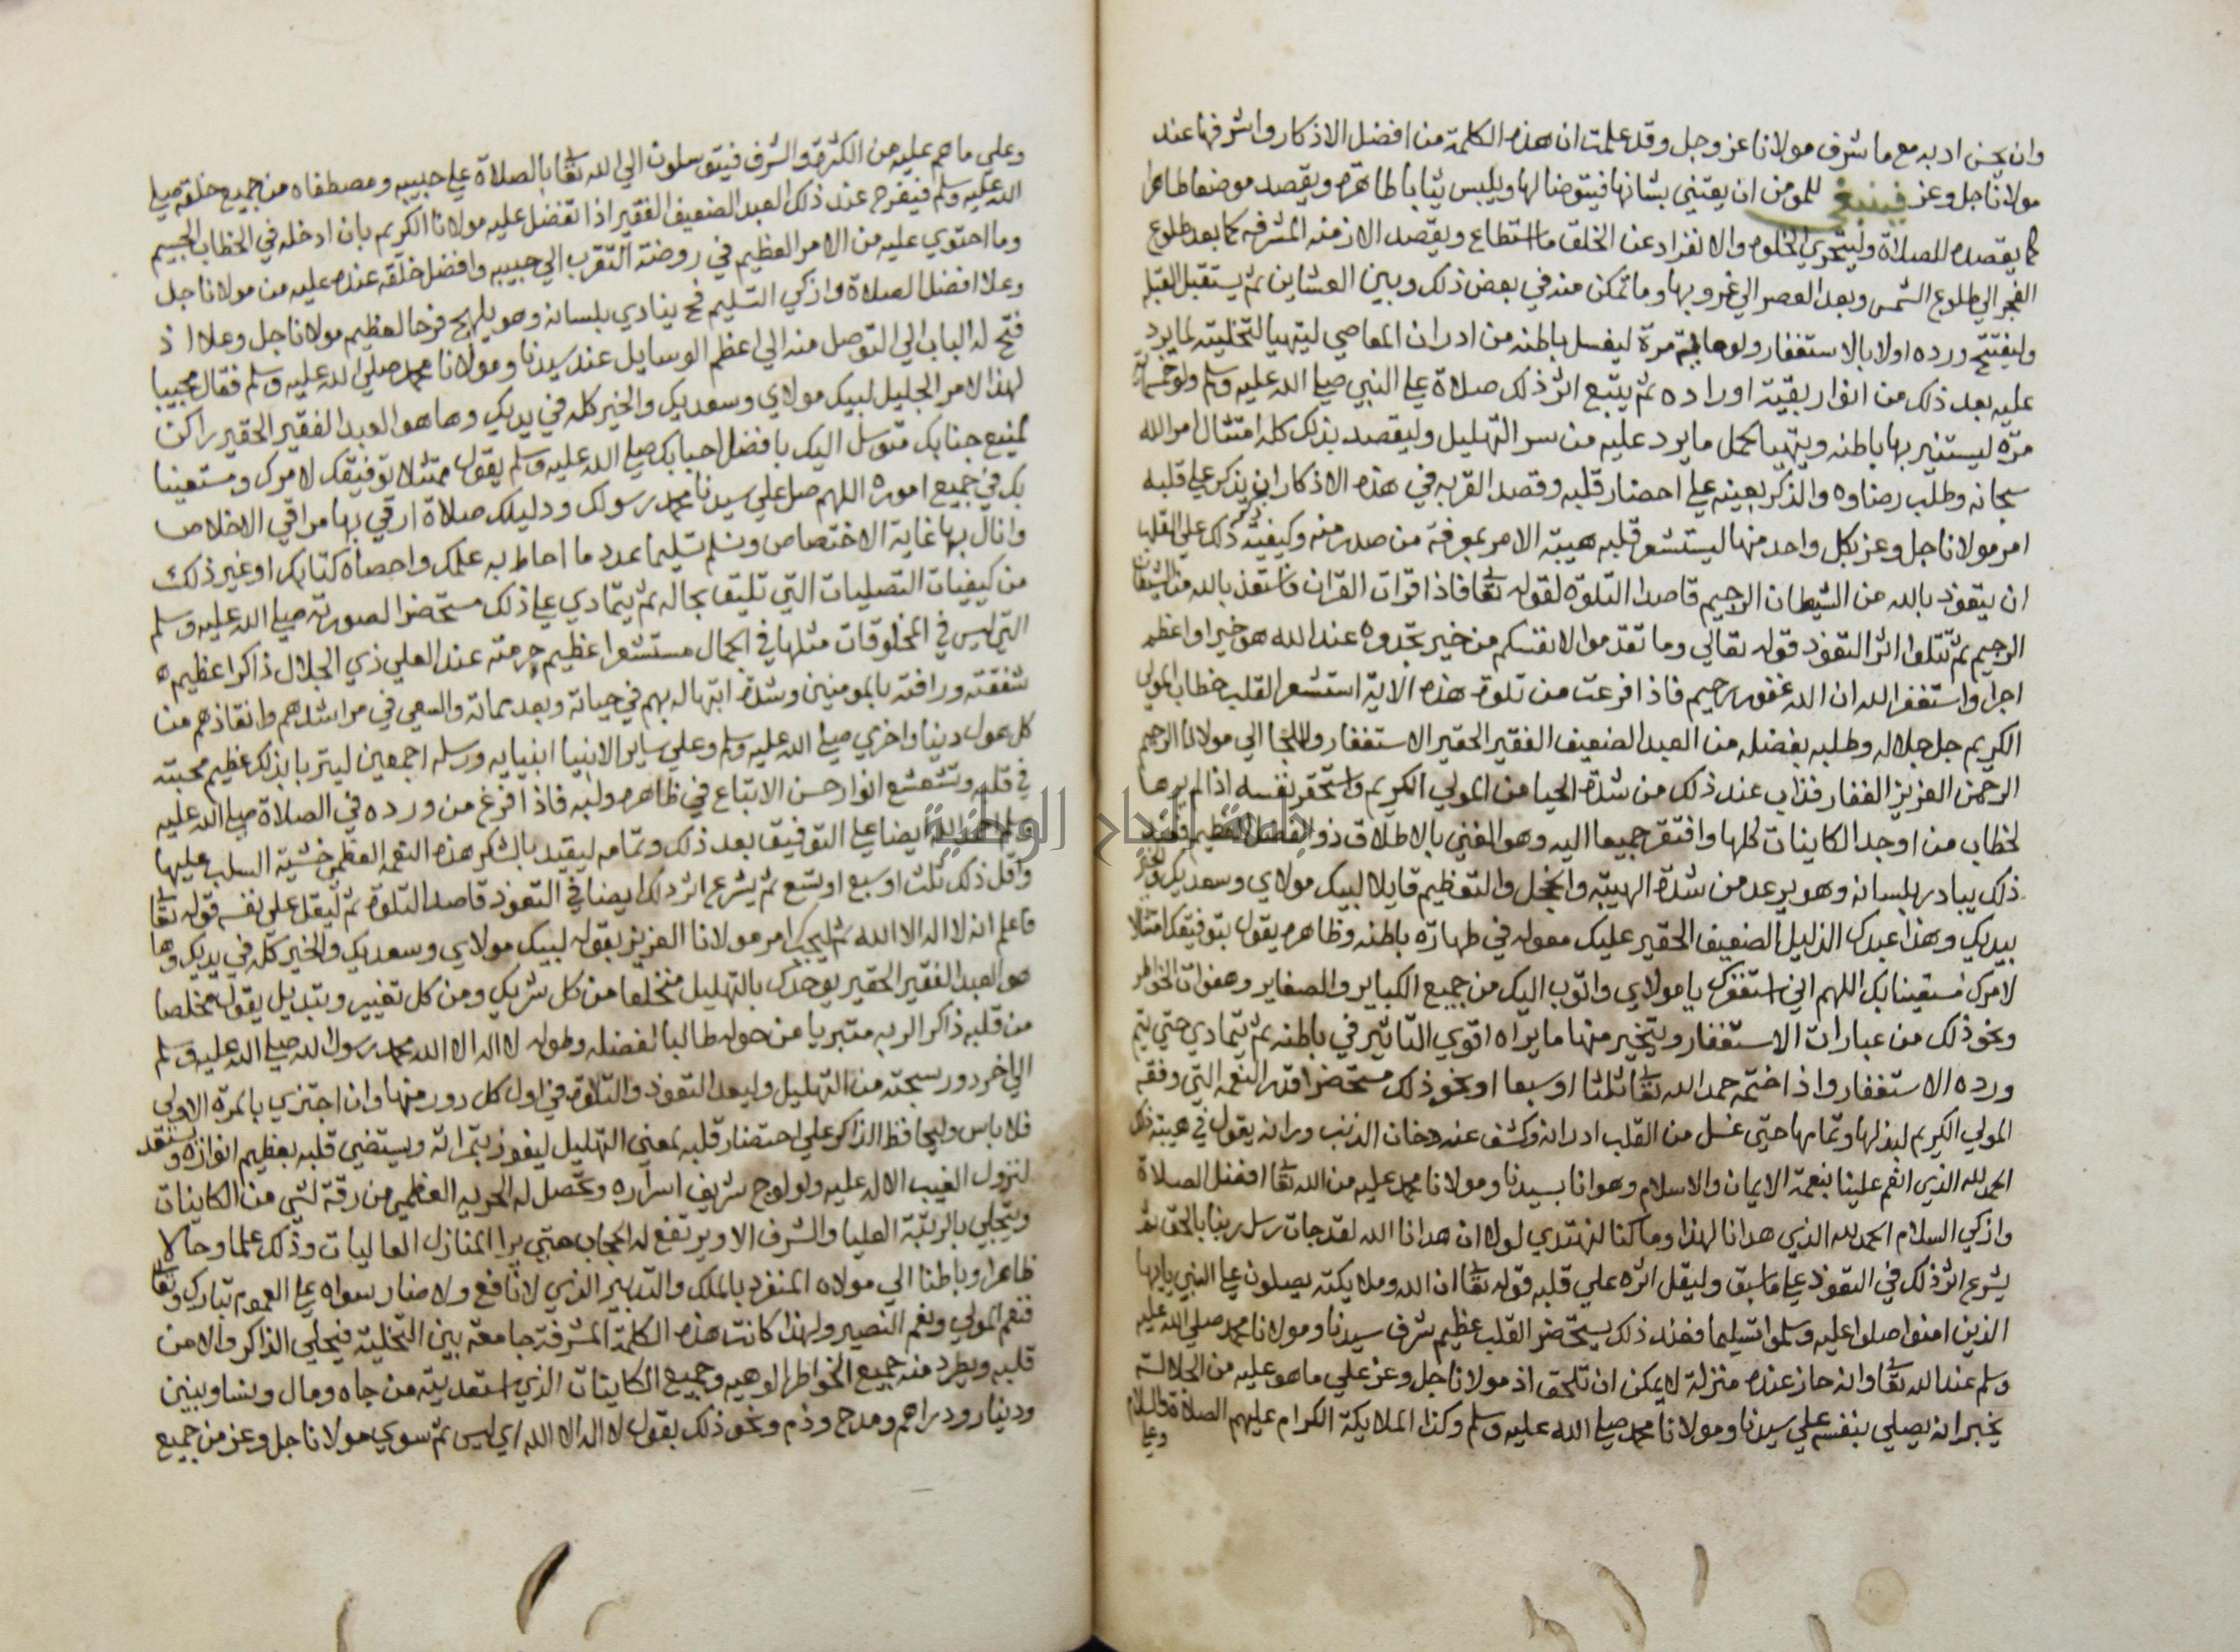 وان يحسن ادبه مع ما شرف مولانا عز وجل وقد علمت ان هذه الكلمة من افضل الاذكار واشرفها عند
مولانا جل وعز فينبغي للمومن ان يعتني بشانها فيتوضا لها ويلبس ثيابا طاهرة ويقصد موضعا طاهرا
كما يقصده للصلاة وليتحري الخلوة والانفراد عن الخلق ما استطاع ويقصد الازمنة المشرفة كما بعد طلوع
الفجر الي طلوع الشمس وبعد العصر الي غروبها وما تمكن منه في بعض ذلك وبين العشاين ثم يستقبل القبلة
وليفتتح ورده اولا بالاستغفار ولو مرة ليغسل باطنه من ادران المعاصي ليتهيا لتحليته لما يرد
عليه بعد ذلك من انوار بقية اوراده ثم يتبع اثر ذلك صلاة علي النبي صلي الله عليه وسلم ولو
مرة ليستنير بها باطنه ويتهيا لحمل ما يرد عليه من سر التهليل وليقصد بذلك كله امتثال امر الله
سبحانه وطلب رضاوه والذكر بعينه علي احضار قلبه وقصد القربة في هذه الاذكار ان يذكر علي قلبه
امر مولانا جل وعز بكل واحد منها ليستشعر قلبه هيبة الامر بمعرفة من صدر منه وكيفية ذكر ذلك علي القلب
ان يتعوذ بالله من الشيطان الرجيم قاصدا التلاوة لقوله تعا فاذا قرات القران فاستعذ بالله من الشيطان
الرجيم ثم تتلوا اثر التعوذ قوله تعالي وما تقدموا لانفسكم من خير تجدوه عند الله هو خيرا واعظم
اجرا واستغفر الله ان الله غفور رحيم فاذا فرغت من تلاوة هذه الاية استشعر القلب خطاب المولي
الكريم جل جلاله وطلبه بفضله من العبد الضعيف الفقير الحقير الاستغفار واللجا الي مولانا الرحيم
الرحمن العزيز الغفار فذاب عند ذلك من شدة الحيا من المولي الكريم واستحقر نفسه اذ لم يرها
لخطاب من اوجد الكاينات كلها وافتقر جميعها اليه وهو الغني بالاطلاق ذو الفضل العظيم فعند
ذلك يبادر بلسانه وهو يرعد من شدة الهيبة والخجل والتعظيم قايلا لبيك مولاي وسعديك والخير
بيديك وهذا عبدك الذليل الضعيف الحقير عليك معوله في طهارة باطنه وظاهره يقول بتوفيقك امتثالا
لامرك مستعينا بك اللهم اني استغفرك يا مولاي واتوب اليك من جميع الكباير والصغاير وهفوات الخواطر
ونحو ذلك من عبارات الاستغفار ويتخير منها ما يراه اقوي التاثير في باطنه ثم يتمادي حتي يتم
ورده الاستغفار واذا ختمه حمد الله تعا ثلاثا او سبعا او نحو ذلك مستحضرا قدر النعمة التي وفقه
المولي الكريم لبدلها وتمامها حتي غسل من القلب ادرانه وكشف عنه دخان الذنب ورانه يقول في هيبة ذلك
الحمد لله الذي انعم علينا بنعمة الايمان والاسلام وهدانا بسيدنا ومولانا محمد عليه من الله تعا افضل الصلاة
وازكي السلام الحمد لله الذي هدانا لهذا وما كنا لنهتدي لولا ان هدانا الله لقد جات رسل ربنا بالحق ثم
يشرع اثر ذلك في التعوذ علي ما سبق وليقل اثره علي قلبه قوله تعا ان الله وملايكته يصلون علي النبي يايها
الذين امنوا صلوا عليه وسلموا تسليما فعند ذلك يستحضر القلب عظيم شرف سيدنا ومولانا محمد صلي الله عليه
وسلم عند الله تعا وانه حاز عنده منزلة لا يمكن ان تلحق اذ مولانا جل وعز علي ما هو عليه من الجلالة
يخبر انه يصلي بنفسه علي سيدنا ومولانا محمد صلي الله عليه وسلم وكذا الملايكة الكرام عليهم الصلاة والسلام
وعلي
وعلي ما هم عليه من الكثرة والشرف فيتوسلون الي الله تعا بالصلاة علي حبيبه ومصطفاه من جميع خلقه صلي
الله عليه وسلم فيفرح عند ذلك العبد الضعيف الفقير اذا تفضل عليه مولانا الكريم بان ادخله في الخطاب الجسيم
وما احتوي عليه من الامر العظيم في روضة التقرب الي حبيبه وافضل خلقه عنده عليه من مولانا جل
وعلا افضل الصلاة وازكي التسليم فح ينادي بلسانه وهو يلهج فرحا لعظيم مولانا جل وعلا اذ
فتح له الباب الي التوصل منه الي اعظم الوسايل عند سيدنا ومولانا محمد صلي الله عليه وسلم فقال مجيبا
لهذا الامر الجليل لبيك مولاي وسعديك والخير كله في يديك وها هو العبد الفقير الحقير راكن
لمنيع جنابك متوسل اليك بافضل احبابك صلي الله عليه وسلم يقول ممتثلا بتوفيقك لامرك ومستعينا
بك في جميع اموره اللهم صل علي سيدنا محمد رسولك ودليلك صلاة ارقي بها مراقي الاخلاص
وانال بها غاية الاختصاص وسلم تسليما عدد ما احاط به علمك واحصاه كتابك او غير ذلك
من كيفيات التصليات التي تليق بحاله ثم يتمادي علي ذلك مستحضرا لصورته صلي الله عليه وسلم
التي ليس في المخلوقات مثلها في الجمال مستشعرا عظيم حرمته عند العلي ذي الجلال ذاكرا عظيم
شفقته ورافته بالمومنين وشدة ابتهاله بهم في حياته وبعد مماته والسعي في مراشدهم وانقاذهم من
كل هول دنيا واخري صلي الله عليه وسلم وعلي ساير الانبيا انبيايه ورسله اجمعين ليتربا بذلك عظيم محبته
في قلبه وتتشعشع انوار حسن الاتباع في ظاهره ولبه فاذا فرغ من ورده في الصلاة صلي الله عليه
وسلم حمد الله ايضا علي التوفيق بعد ذلك وتمامه ليقيد بالشكر هذه النعمة العظمي خشية السلب عليها
واقل ذلك ثلث او سبع او تسع ثم يشرع اثر ذلك ايضا في التعوذ قاصدا التلاوة ثم ليقل علي نفسه قوله تعا
فاعلم انه لا اله الا الله ثم ليجب امر مولانا العزيز بقوله لبيك مولاي وسعديك والخير كله في يديك وها
هو العبد الفقير الحقير يوحدك بالتهليل منخلعا من كل شريك ومن كل تغيير وتبديل يقوله مخلصا
من قلبه ذاكرا لربه متبريا من حوله طالبا لفضله وطوله لا اله الا الله محمد رسول الله صلي الله عليه وسلم
الي اخر دور سبحته من التهليل وليعد التعوذ والتلاوة في اول كل دور منها وان اجتزي بالمرة الاولي
فلا باس وليحافظ الذاكر علي احتضار قلبه لمعني التهليل ليفوز بثمراته ويستضي قلبه بعظيم انواره ويستعد
لنزول الغيب الاله عليه ولولوج شريف اسراره وتحصل له الحرية العظمي من رقة لشي من الكاينات
ويتحلي بالرتبة العليا والشرف الا ويرتفع له الحجاب حتي يرا المنازل العاليات وذلك علما وحالا
ظاهرا وباطنا الي مولاه المنفرد بالملك والتدبير الذي لا نافع ولا ضار سواه علي العموم تبارك وتعا
فنعم المولي ونعم النصير ولهذا كانت هذه الكلمة المشرفة جامعة بين التخلية فيخلي الذاكر والامن
قلبه ويطرد منه جميع الخواطر الوهيه وجميع الكاينات الذي استعد بته من جاه ومال ونسا وبنين
ودينار ودراهم ومدح وذم ونحو ذلك بقول لا اله الا الله اي ليس ثم سوي مولانا جل وعز من جميع
جامعة النجاح الوطنية